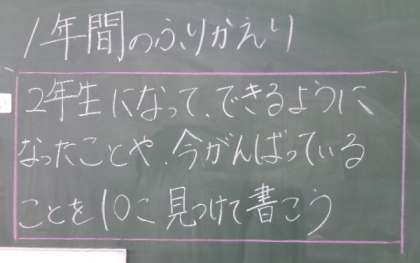 1年間のふりかえり
2年生になって、できるように
なったことや、今がんばっている
ことを10こ見つけて書こう